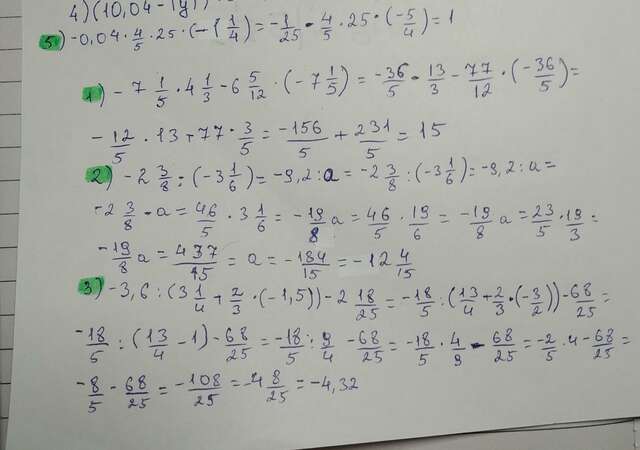 4) (10,04 - 1y1)
5) -0,04 · 4/5 · 25 · (-1 1/4) = -1/25 · 4/5 · 25 · (-5/4) = 1
1) -7 1/5 · 4 1/3 - 6 5/12 · (-7 1/5) = -36/5 · 13/3 - 77/12 · (-36/5) =
-12/5 · 13 + 77 · 3/5 = -156/5 + 231/5 = 15
2) -2 3/8 : (-3 1/6) = -9,2 : a = -2 3/8 : (-3 1/6) = -9,2 : a =
-2 3/8 · a = 46/5 · 3 1/6 = -19/8 a = 46/5 · 19/6 = -19/8 a = 23/5 · 19/3 =
-19/8 a = 437/15 = a = -184/15 = -12 4/15
3) -3,6 : (3 1/4 + 2/3 · (-1,5)) - 2 18/25 = -18/5 : (13/4 + 2/3 · (-3/2)) - 68/25 =
-18/5 : (13/4 - 1) - 68/25 = -18/5 : 9/4 - 68/25 = -18/5 · 4/9 - 68/25 = -2/5 · 4 - 68/25 =
-8/5 - 68/25 = -108/25 = -4 8/25 = -4,32